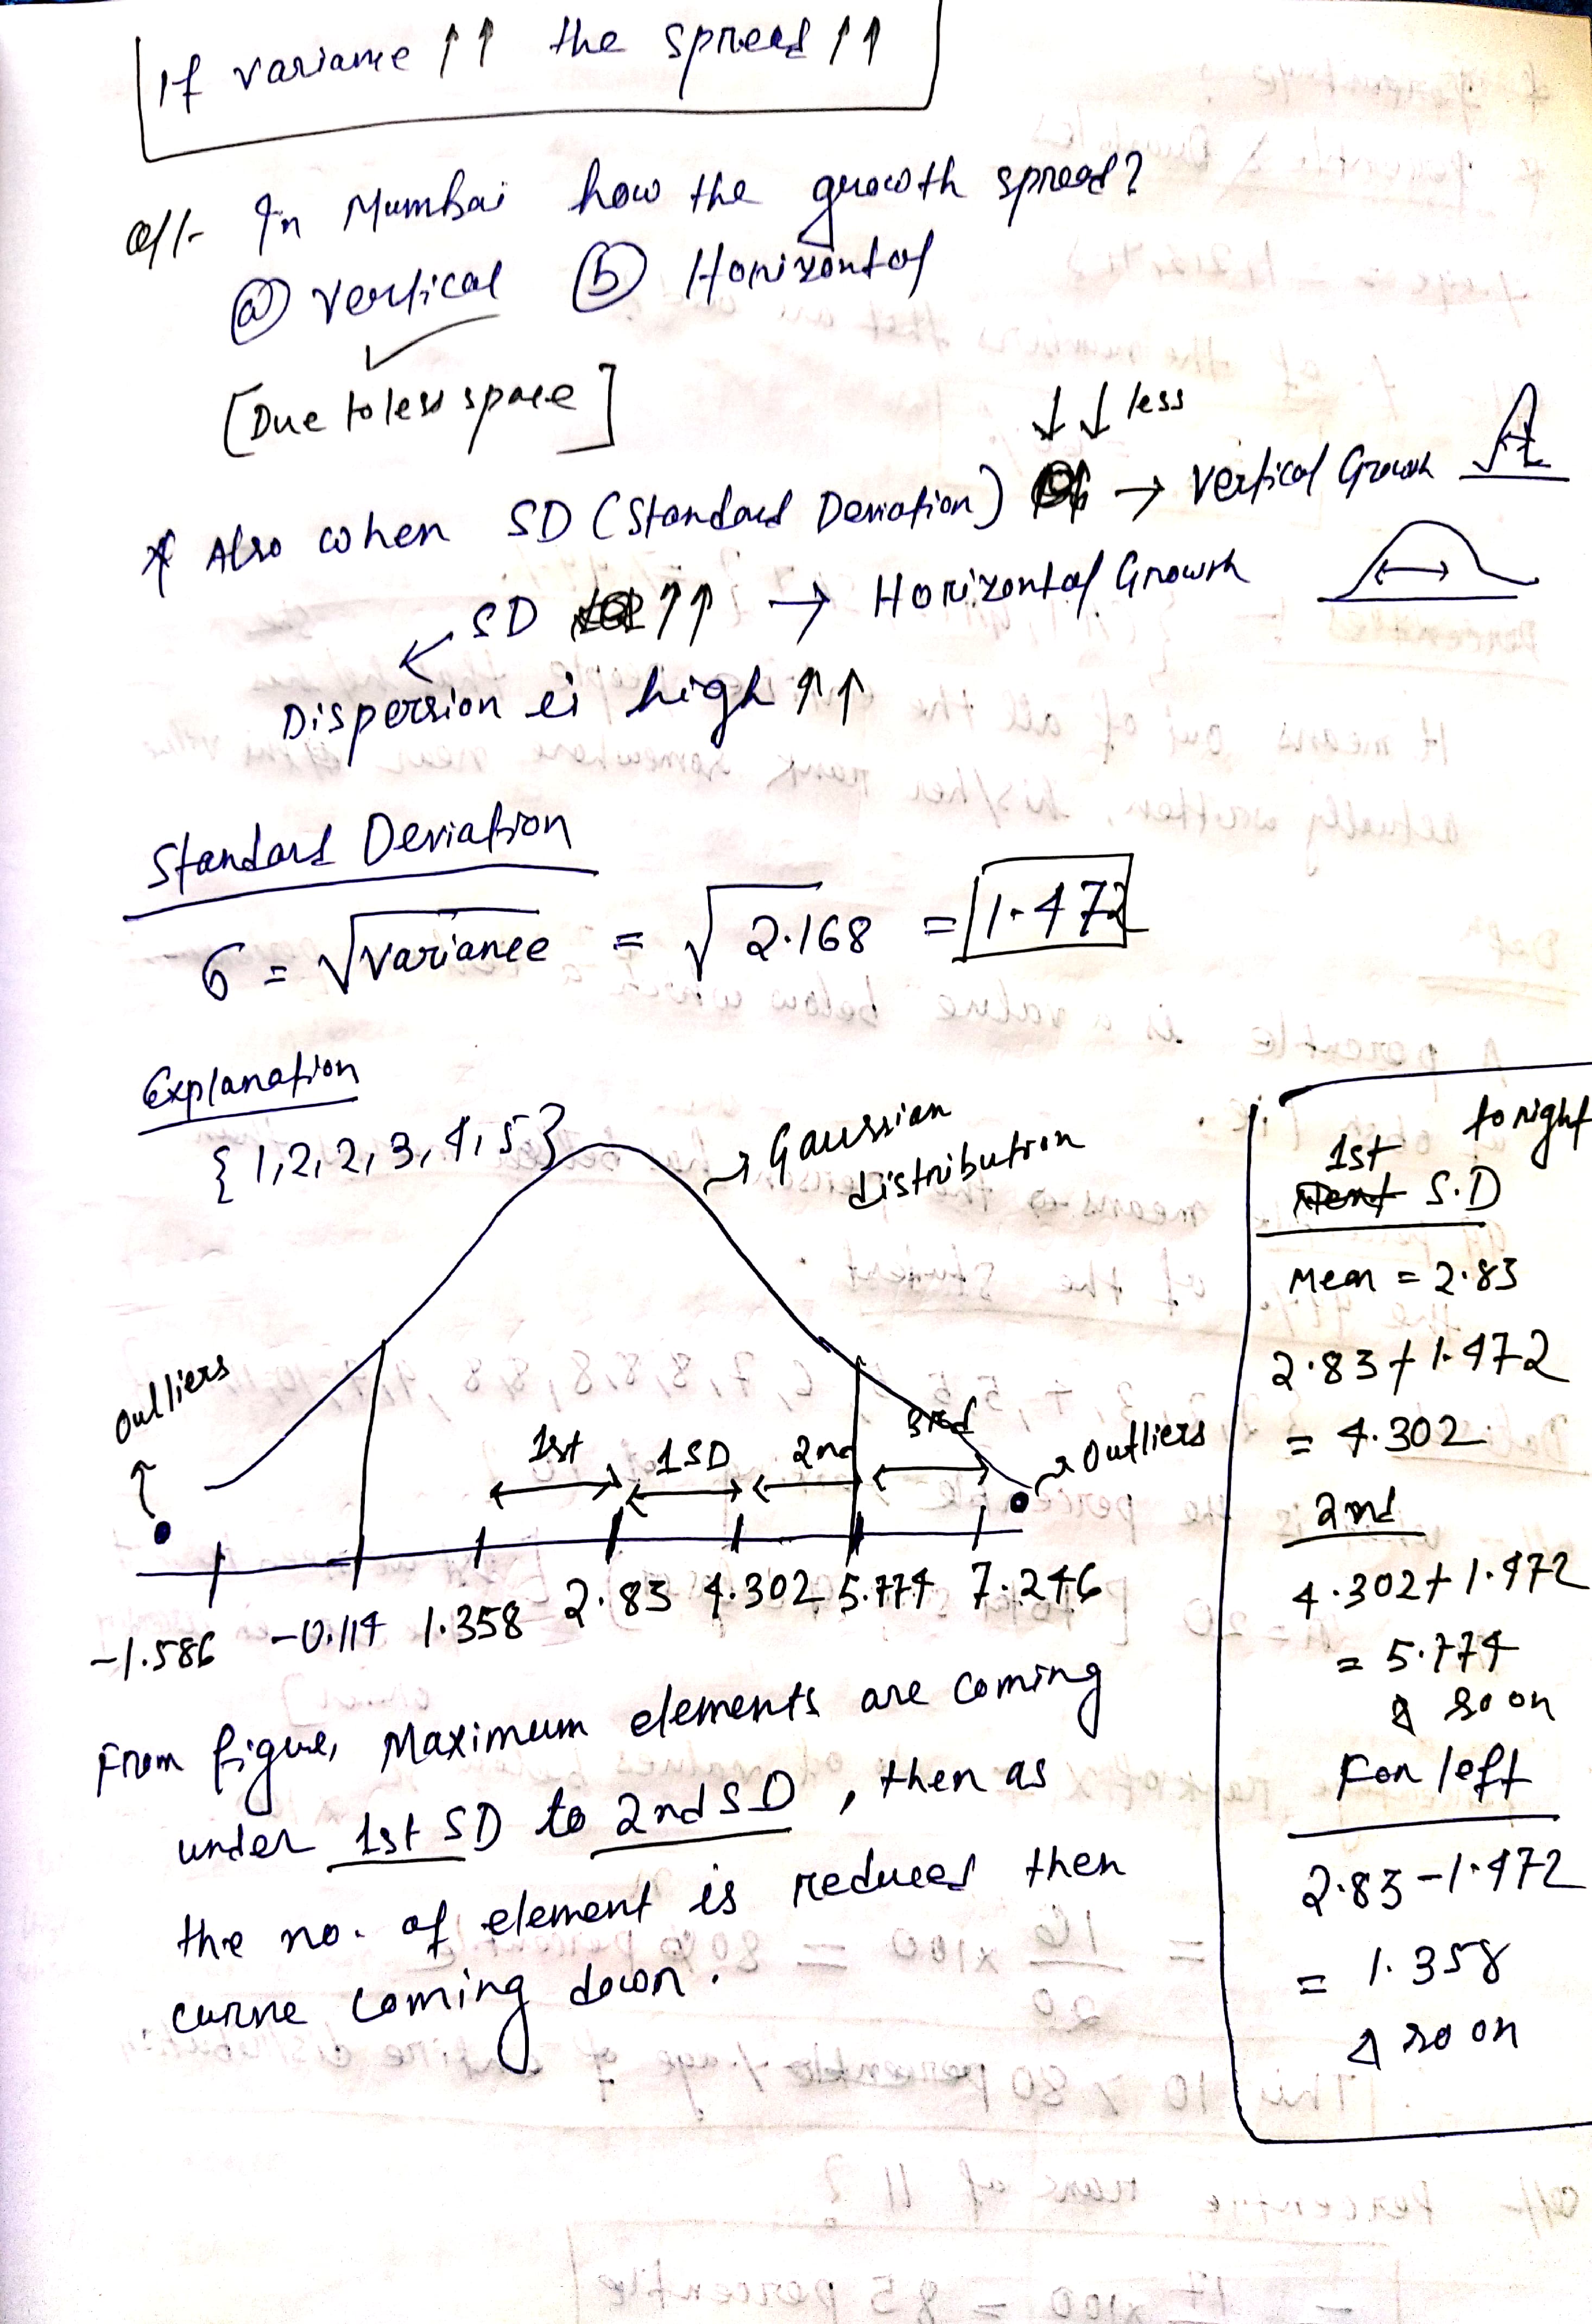 If variance ↑↑ the spread ↑↑
Q/- In Mumbai how the growth spread?
(a) Vertical (b) Horizontal
[Due to less space]
↓↓ less
* Also when SD (Standard Deviation) → Vertical Growth
SD ↑↑ → Horizontal Growth
Dispersion is high ↑↑
Standard Deviation
σ = √variance = √2.168 = 1.472
Explanation
{1,2,2,3,4,5}
→ Gaussian
distribution
Outliers
1st 1SD 2nd 3rd
→ Outliers
-1.586 -0.114 1.358 2.83 4.302 5.774 7.246
From figure, Maximum elements are coming
under 1st SD to 2nd SD, then as
the no. of element is reduces then
curve coming down.
to right
1st
S.D
Mean = 2.83
2.83 + 1.472
= 4.302
2nd
4.302 + 1.472
= 5.774
& so on
For left
2.83 - 1.472
= 1.358
& so on